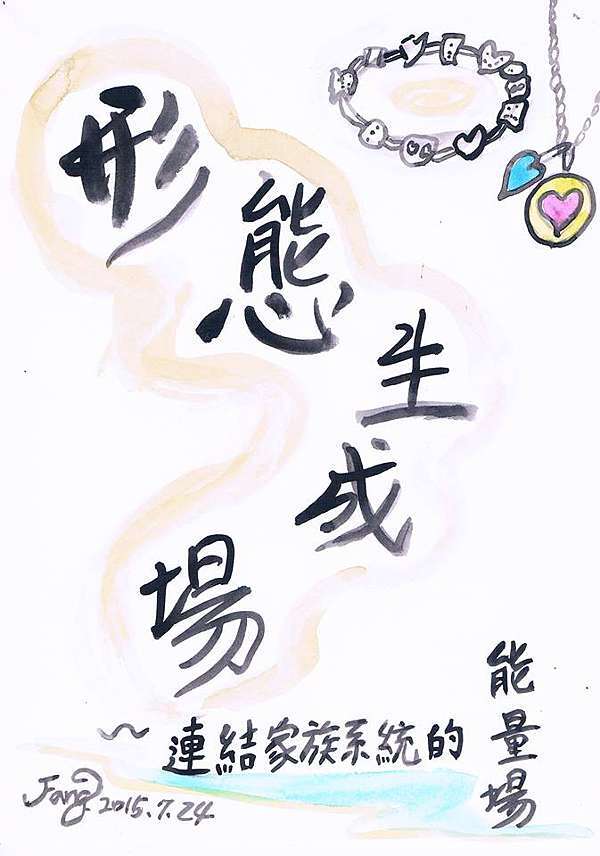 形態生成場
~連結家族系統的
能量場
Fang 2015.7.24